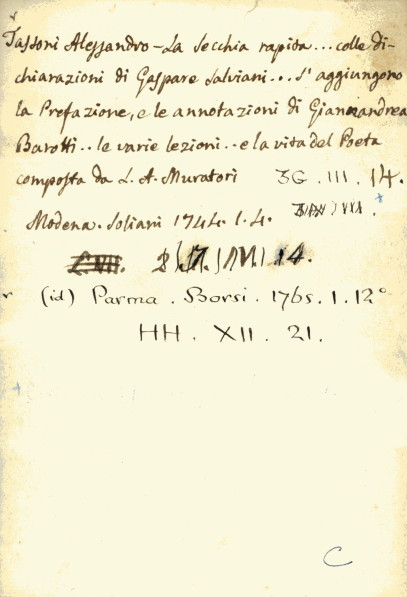 Tassoni Alessandro - La Secchia rapita... colle di-
chiarazioni di Gaspare Salviani... s'aggiungono
la Prefazione, e le annotazioni di Gianandrea
Barotti.. le varie lezioni.. e la vita del Poeta
composta da L. A. Muratori 3G. III. 14.
Modena. Soliani 1744. 1. 4.
14.
(id) Parma. Borsi. 1765. 1. 12°
HH. XII. 21.
C